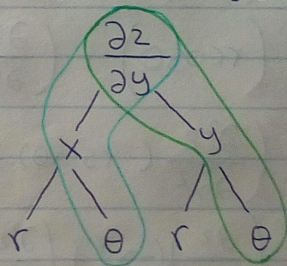 ∂z
∂y
x y
r θ r θ